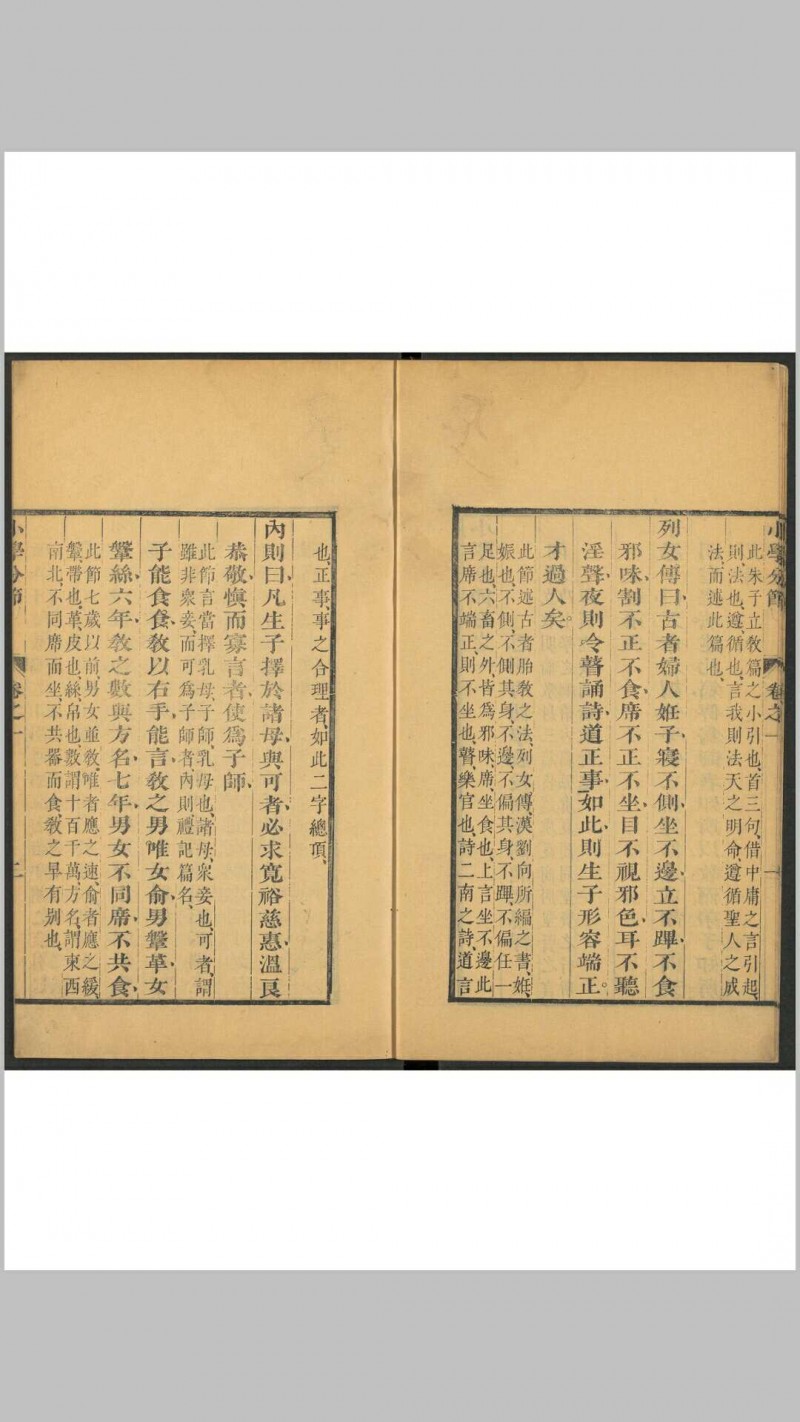 小學分節
卷之一
一
此朱子立教篇之小引也、首三句、借中庸之言引起、
則、法也、遵、循也、言我則法天之明命、遵循聖人之
法、而述此篇也、
列女傳曰、古者婦人姙子、寢不側、坐不邊、立不蹕、不食
邪味、割不正不食、席不正不坐、目不視邪色、耳不聽
淫聲、夜則令瞽誦詩、道正事、如此則生子形容端正。
才過人矣。
此節述古者胎教之法、列女傳、漢劉向所編之書、姙、
娠也、不側、不側其身、不邊、不偏其身、不蹕、不偏任一
足也、六畜之外、皆爲邪味、席、坐食也、上言坐不邊、此
言席不端正、則不坐也、瞽、樂官也、詩、二南之詩、道、言
也、正事、事之合理者、如此二字總頂、
內則曰、凡生子、擇於諸母與可者、必求寬裕慈惠溫良
恭敬、愼而寡言者、使爲子師、
此節言當擇乳母、子師、乳母也、諸母、衆妾也、可者、謂
雖非衆妾、而可爲子師者、內則、禮記篇名、
子能食食、教以右手、能言、教之男唯女俞、男鞶革、女
鞶絲、六年、教之數與方名、七年、男女不同席、不共食、
此節七歲以前、男女並教、唯者應之速、俞者應之緩、
鞶、帶也、革、皮也、絲、帛也、數、謂十百千萬、方名、謂東西
南北、不同席而坐、不共器而食、教之早有别也、
小學分節
卷之一
二